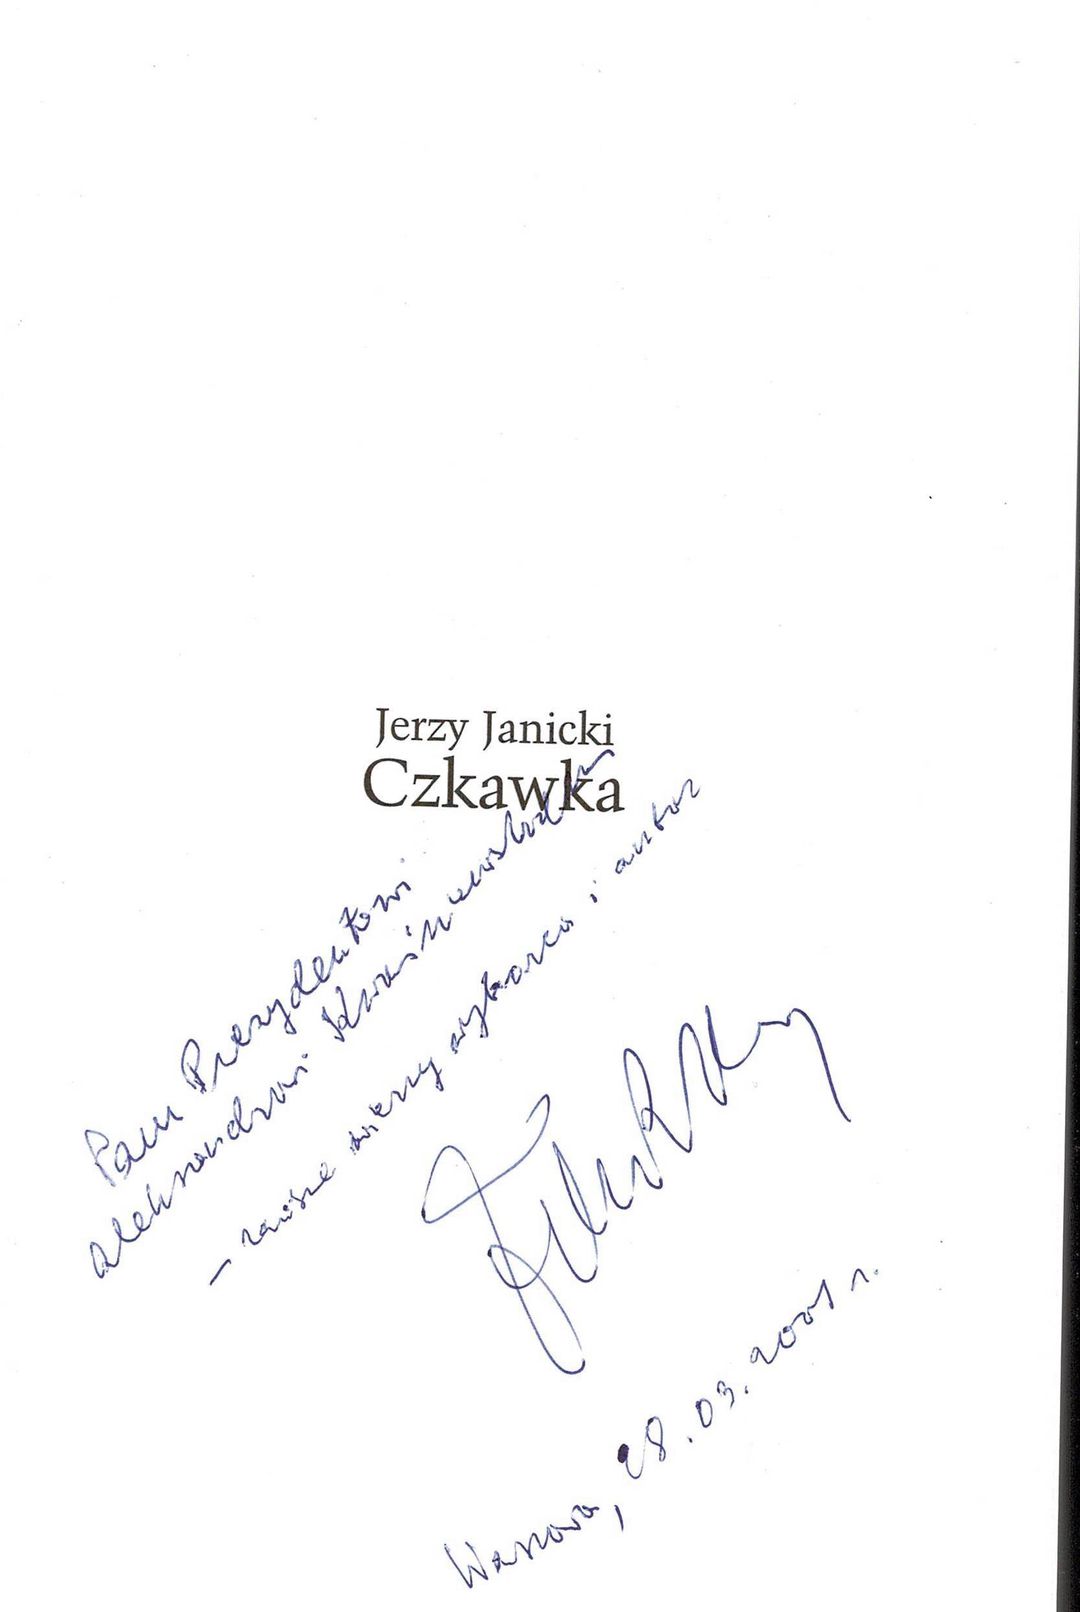 Jerzy Janicki
Czkawka
Panu Prezydentowi
Aleksandrowi Kwaśniewskiemu
– zawsze wierny wyborca i autor
Warszawa, 28.03.2001 r.